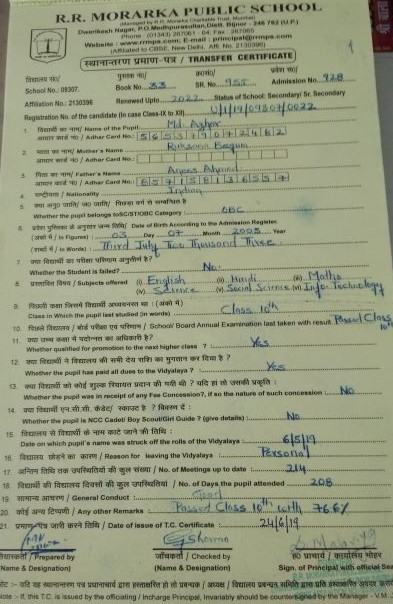 R.R. MORARKA PUBLIC SCHOOL
(Managed by R.R. Morarka Charitable Trust, Mumbai)
Dwarikesh Nagar, P.O.Medhpurasultan, Distt. Bijnor - 246 762 (U.P.)
Phone : (01343) 267061 - 64, Fax : 267065
Website : www.rrmps.com; E-mail : principal@rrmps.com
(Affiliated to CBSE, New Delhi, Affi. No. 2130396)
स्थानान्तरण प्रमाण-पत्र / TRANSFER CERTIFICATE
विद्यालय सं०/ पुस्तक सं०/ प्रवेश सं०/
School No.: 08307. Book No. 33 SR. No. 955 Admission No. 928
Affiliation No.: 2130396 Renewed Upto 2022 Status of School: Secondary/ Sr. Secondary
Registration No. of the candidate (in case Class-IX to XII)
1. विद्यार्थी का नाम/ Name of the Pupil Md. Azhar
आधार कार्ड नं० / Adhar Card No.:
2. माता का नाम/ Mother's Name Ruksana Begum
आधार कार्ड नं० / Adhar Card No.:
3. पिता का नाम/ Father's Name Anees Ahmad
आधार कार्ड नं० / Adhar Card No.:
4. राष्ट्रीयता / Nationality Indian
5. क्या अनु० जाति/ जन० जाति/ पिछड़ा वर्ग से सम्बन्धित है
Whether the pupil belongs to SC/ST/OBC Category : OBC
6. प्रवेश पुस्तिका के अनुसार जन्म तिथि/ Date of Birth According to the Admission Register.
(अंको में) / (in Figures) : 03 Day 07 Month 2003 Year
(शब्दों में) / (in Words) : Third July Two Thousand Three
7. क्या विद्यार्थी का परीक्षा परिणाम अनुत्तीर्ण है?
Whether the Student is failed? No
8. प्रस्तावित विषय / Subjects offered (i) English (ii) Hindi (iii) Maths
(iv) Science (v) Social Science (vi) Info-Technology
9. पिछली कक्षा जिसमें विद्यार्थी अध्ययनरत था : (अंको में)
Class in Which the pupil last studied (in words) Class 10th
10. पिछले विद्यालय / बोर्ड परीक्षा एवं परिणाम / School/ Board Annual Examination last taken with result Passed Class 10th
11. क्या उच्च कक्षा में पदोन्नत का अधिकारी है?
Whether qualified for promotion to the next higher class ? Yes
12. क्या विद्यार्थी ने विद्यालय की सभी देय राशि का भुगतान कर दिया है ?
Whether the pupil has paid all dues to the Vidyalaya ? Yes
13. क्या विद्यार्थी को कोई शुल्क रियायत प्रदान की गयी थी ? यदि हां तो उसकी प्रकृति :
Whether the pupil was in receipt of any Fee Concession?, if so the nature of such concession : No
14. क्या विद्यार्थी एन.सी.सी. कैडेट/ स्काउट है ? विवरण दें :
Whether the pupil is NCC Cadet/ Boy Scout/Girl Guide ? (give details) : No
15. विद्यालय से विद्यार्थी के नाम काटे जाने की तिथि :
Date on which pupil's name was struck off the rolls of the Vidyalaya : 6/5/19
16. विद्यालय छोड़ने का कारण / Reason for leaving the Vidyalaya Personal
17. अन्तिम तिथि तक उपस्थितियों की कुल संख्या / No. of Meetings up to date : 214
18. विद्यार्थी की विद्यालय दिवसों की कुल उपस्थितियां / No. of Days the pupil attended 208
19. सामान्य आचरण / General Conduct : Good
20. कोई अन्य टिप्पणी / Any other Remarks : Passed Class 10th with 76.6%
21. प्रमाण-पत्र जारी करने तिथि / Date of issue of T.C. Certificate 24/6/19
तैयारकर्ता / Prepared by जाँचकर्ता / Checked by ह० प्राचार्य / कार्यालय मोहर
(Name & Designation) (Name & Designation) Sign. of Principal with official Seal
Note :- If this T.C. is issued by the officiating / Incharge Principal, Invariably should be countersigned by the Manager - V.M.